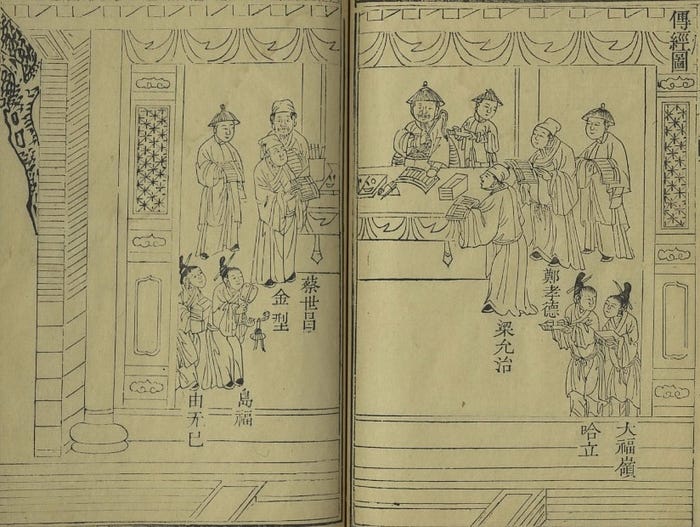 傳經圖
鄭孝德
梁允治
大福嶺
哈立
蔡世昌
金型
島福
由无已